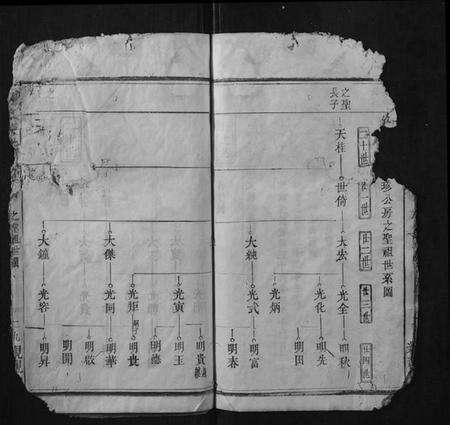 珍公房之聖祖世系圖
二十世
廿一世
廿二世
廿三世
廿四世
之聖
長子
天桂
世倚
大宏
大純
大傑
大鐘
光全
光化
光炳
光式
光寅
光矩
光回
光容
明秋
明先
明田
明富
明春
明貴
明玉
明德
明貴
明華
明啟
明開
明昇